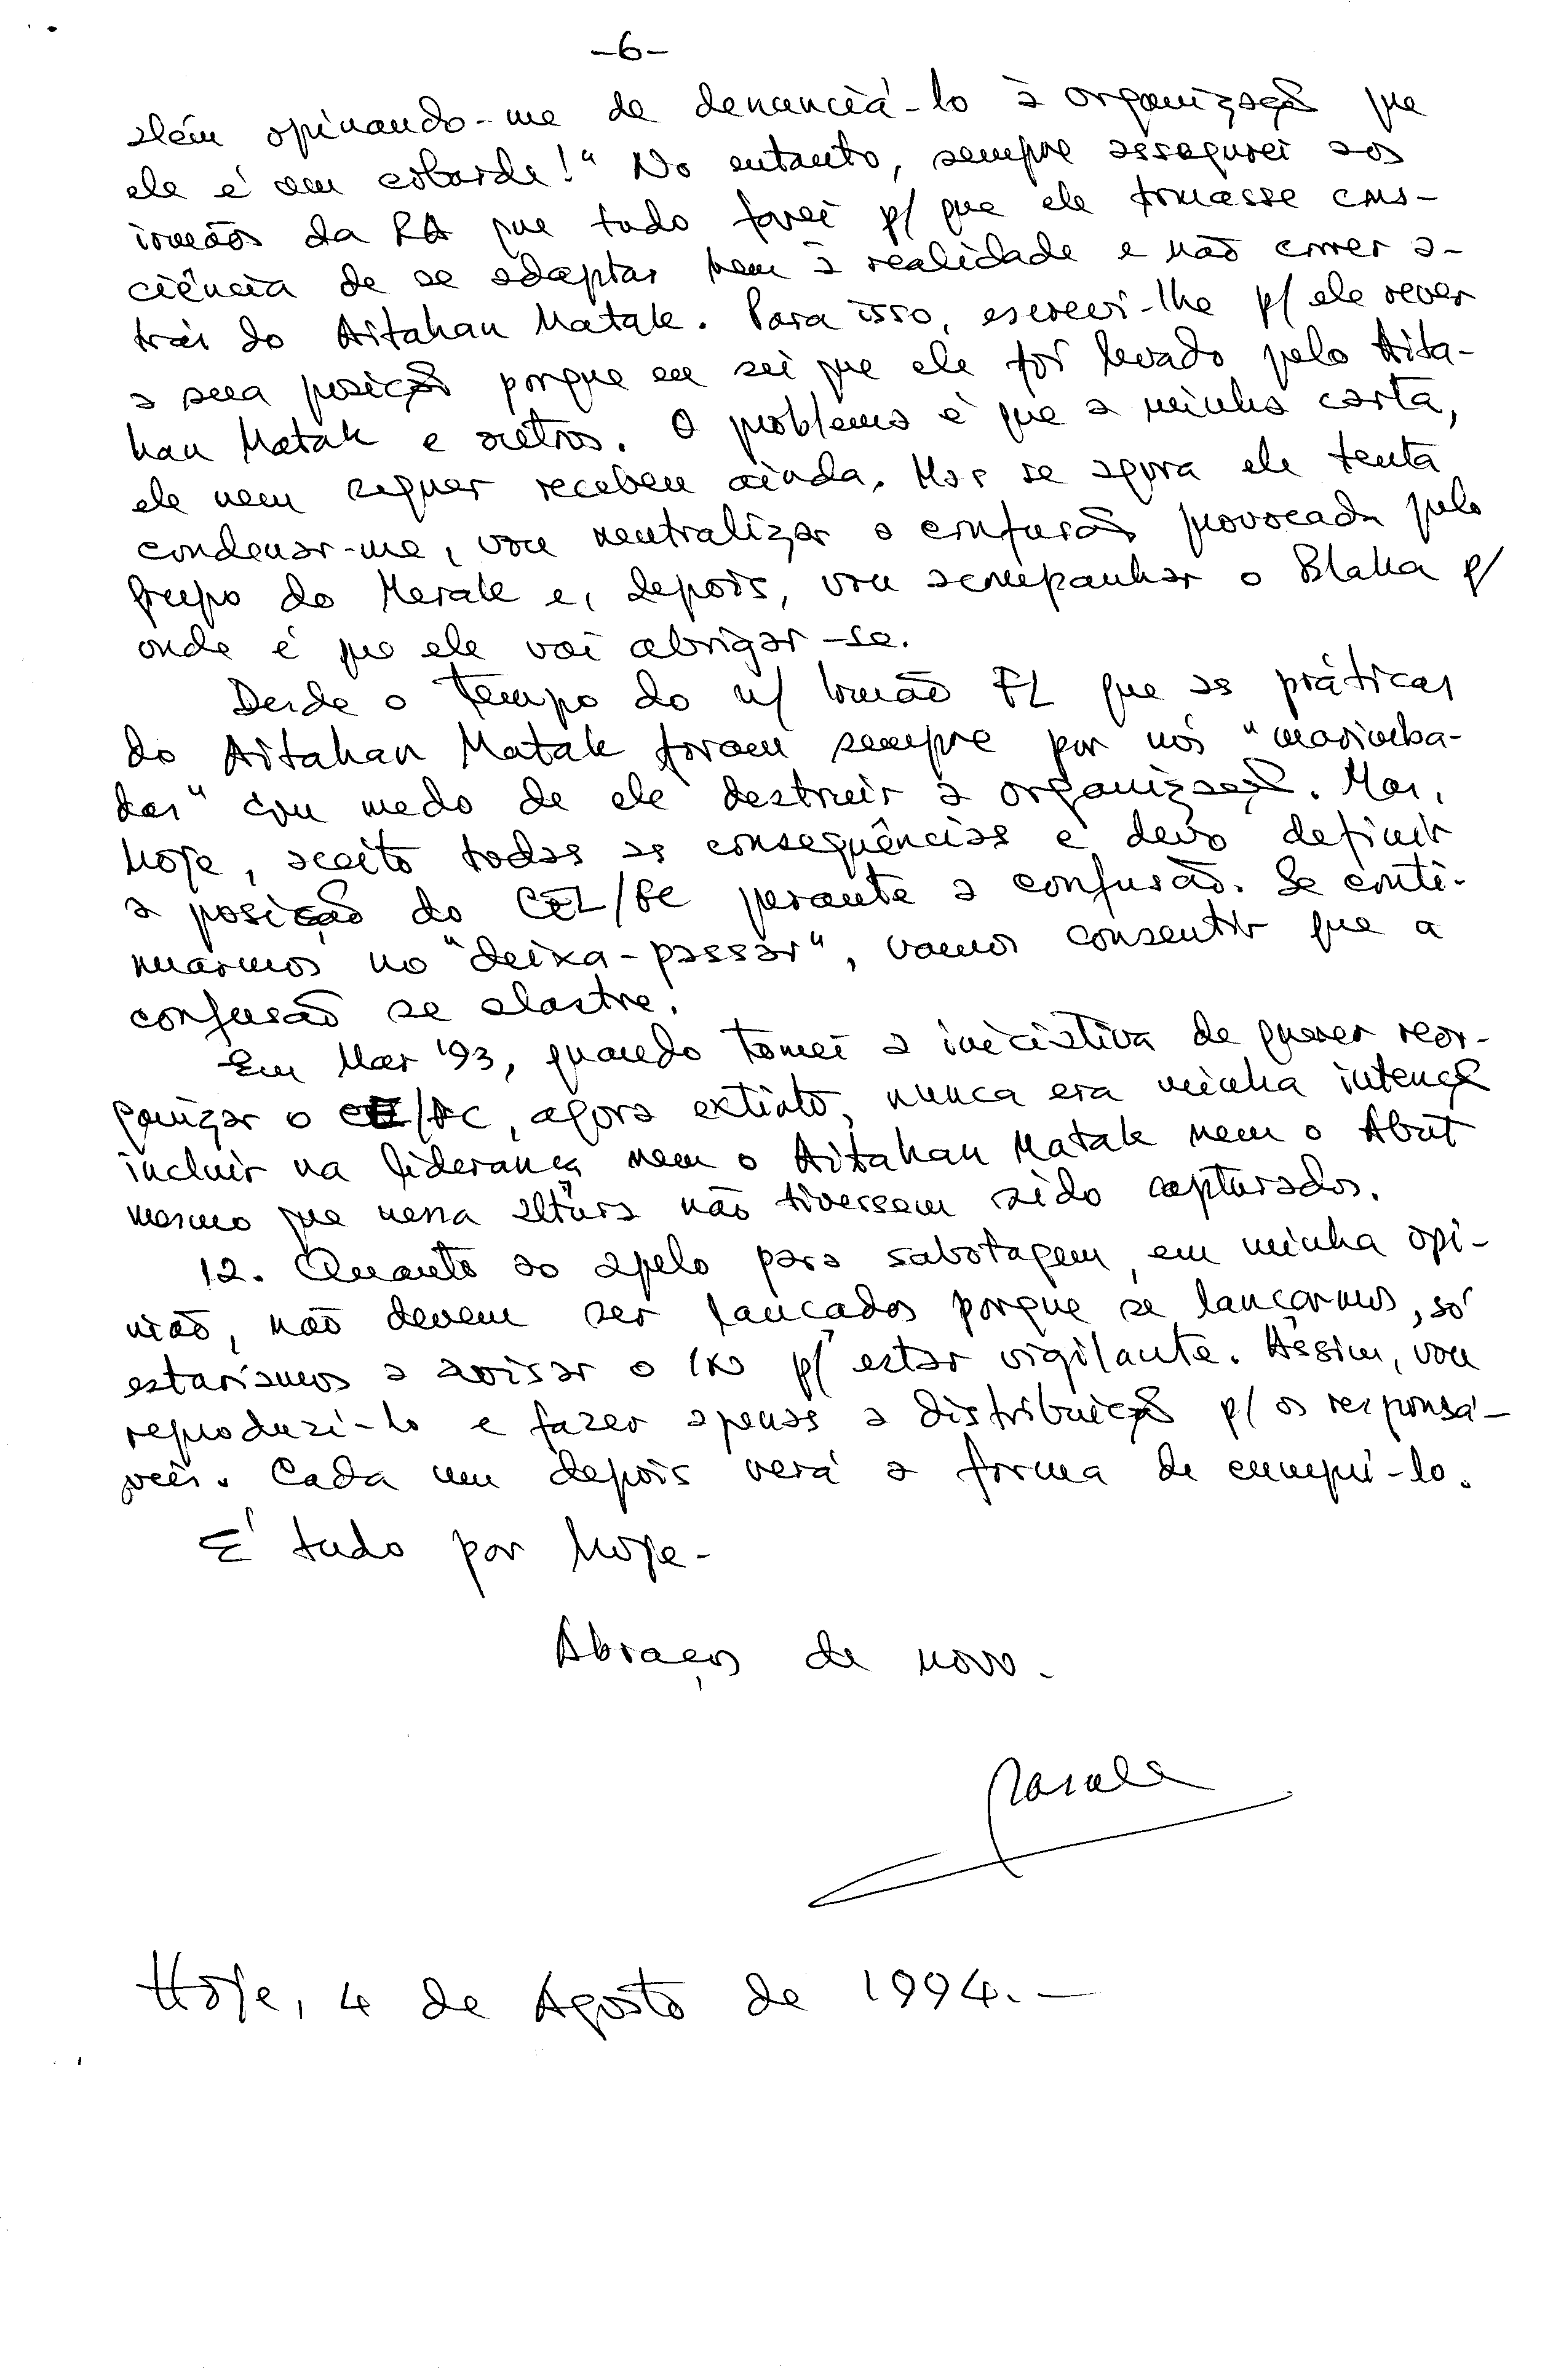 -6-
além opinando-me de denunciá-lo à organização que
ele é um cobarde!" No entanto, sempre assegurei aos
irmãos da RA que tudo farei p/ que ele tomasse cons-
ciência de se adaptar bem à realidade e não correr a-
trás do Aitahan Matak. Para isso, escrevi-lhe p/ ele rever
a sua posição porque eu sei que ele foi levado pelo Aita-
han Matak e outros. O problema é que a minha carta,
ele nem sequer recebeu ainda. Mas se agora ele tenta
condenar-me, vou neutralizar a confusão provocada pelo
grupo do Merak e, depois, vou acompanhar o Blaka p/
onde é que ele vai abrigar-se.
Desde o tempo do n/ Irmão FL que as práticas
do Aitahan Matak foram sempre por nós "marimba-
das" com medo de ele destruir a organização. Mas,
hoje, aceito todas as consequências e devo definir
a posição do CEL/FC perante a confusão. Se conti-
nuarmos no "deixa-passar", vamos consentir que a
confusão se alastre.
Em Mar '93, quando tomei a iniciativa de querer reor-
ganizar o CE/AC, agora extinto, nunca era minha intenção
incluir na liderança nem o Aitahan Matak nem o Abut
mesmo que nessa altura não tivessem sido capturados.
12. Quanto ao apelo para sabotagem, em minha opi-
nião, não devem ser lançados porque se lançarmos, só
estaríamos a avisar o IN p/ estar vigilante. Assim, vou
reproduzi-lo e fazer apenas a distribuição p/ os responsá-
veis. Cada um depois verá a forma de cumpri-lo.
É tudo por hoje-
Abraços de novo.
Hoje, 4 de Agosto de 1994.-